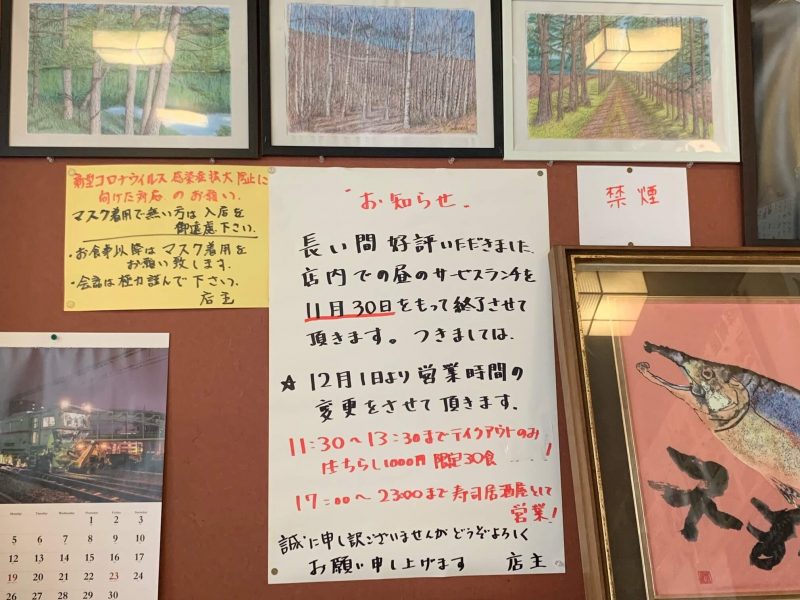 新型コロナウイルス感染症拡大防止に
向けた対応のお願い.
マスク着用で無い方は入店を
御遠慮下さい.
・お食事以降はマスク着用を
お願い致します.
・会話は極力謹んで下さい.
店主
お知らせ.
長い間好評いただきました.
店内での昼のサービスランチを
11月30日をもって終了させて
頂きます。つきましては.
☆12月1日より営業時間の
変更をさせて頂きます.
11:30〜13:30までテイクアウトのみ
生ちらし1000円 限定30食 ―!
17:00〜23:00まで寿司居酒屋として
営業!
誠に申し訳ございませんがどうぞよろしく
お願い申し上げます 店主
禁煙
Monday Tuesday Wednesday Thursday Friday Saturday
1 2 3
5 6 7 8 9 10
12 13 14 15 16 17
19 20 21 22 23 24
26 27 28 29 30